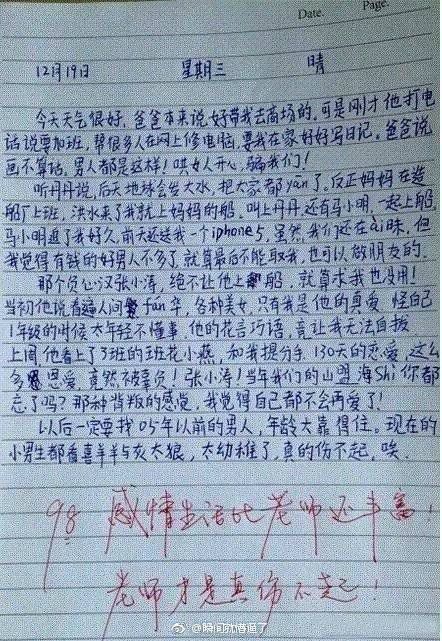 Date. Page.
12月19日 星期三 晴
今天天气很好,爸爸本来说好带我去商场的,可是刚才他打电
话说要加班,帮很多人在网上修电脑,要我在家好好写日记。爸爸说
画不算话,男人都是这样!哄女人开心,骗我们!
听丹丹说,后天地球会发大水,把大家都yān了。反正妈妈在造
船厂上班,洪水来了我就上妈妈的船。叫上丹丹,还有马小明,一起上船,
马小明追了我好久,前天还送我一个iphone5,虽然我们还在ai昧,但
我觉得有钱的好男人不多了,就算最后不能取我,也可以做朋友的。
那个负心汉张小涛,绝不让他上船,就算求我也没用!
当初他说看遍人间fán华,各种美女,只有我是他的真爱 怪自己
1年级的时候太年轻不懂事,他的花言巧语,竟让我无法自拔
上周他看上了3班的班花小燕,和我提分手,130天的恋爱,这么
多恩爱,竟然被辜负!张小涛!当年我们的山盟海Shi你都
忘了吗?那种背叛的感觉,我觉得自己都不会再爱了!
以后一定要找05年以前的男人,年龄大靠得住。现在的
小男生都看喜羊羊与灰太狼,太幼稚了,真的伤不起,唉.
98 感情生活比老师还丰富!
老师才是真伤不起!
@瞬间就懵逼了